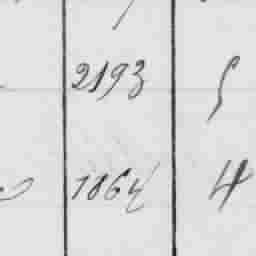 2193 5
1864 4